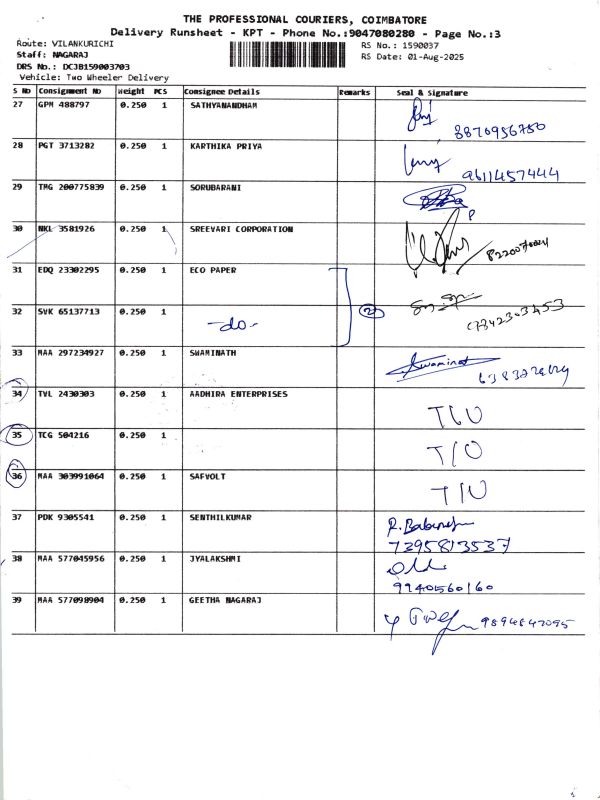 THE PROFESSIONAL COURIERS, COIMBATORE
Delivery Runsheet - KPT - Phone No.:9047080280 - Page No.:3
Route: VILANKURICHI
RS No.: 1590037
Staff: NAGARAJ
RS Date: 01-Aug-2025
DRS No.: DCJB159003703
Vehicle: Two Wheeler Delivery
S No Consignment No Weight PCS Consignee Details Remarks Seal & Signature
27 GPM 488797 0.250 1 SATHYANANDHAM
8870956750
28 PGT 3713282 0.250 1 KARTHIKA PRIYA
9611457444
29 TMG 200775839 0.250 1 SORUBARANI
30 NKL 3581926 0.250 1 SREEVARI CORPORATION
31 EDQ 23302295 0.250 1 ECO PAPER
32 SVK 65137713 0.250 1 -do- 2
33 MAA 297234927 0.250 1 SWAMINATH Swaminat
34 TVL 2430303 0.250 1 AADHIRA ENTERPRISES T/U
35 TCG 504216 0.250 1 T/O
36 MAA 303991064 0.250 1 SAFVOLT T/U
37 PDK 9305541 0.250 1 SENTHILKUMAR
7395813537
38 MAA 577045956 0.250 1 JYALAKSHMI
9940560160
39 MAA 577098904 0.250 1 GEETHA NAGARAJ 9894847095